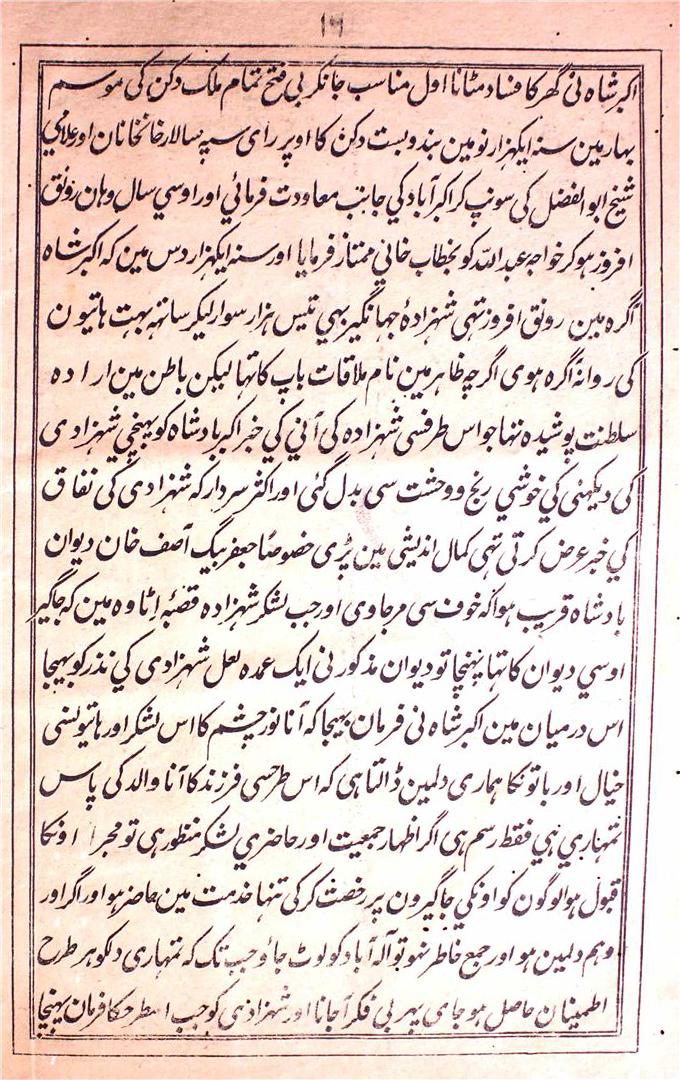 ۱۶
اکبر شاہ نی گھر کا فساد مٹانا اول مناسب جانکر بی فتح تمام ملک دکن کی موسم
بہار مین سنہ ایکہزار نو مین بندوبست دکن کا اوپر رای سپہ سالار خانخانان اور علامی
شیخ ابو الفضل کی سونپ کر اکبر آباد کی جانب معاودت فرمائی اور اوسی سال وہان رونق
افروز ہوکر خواجہ عبد اللہ کو بخطاب خانی ممتاز فرمایا اور سنہ ایکہزار دس مین کہ اکبر شاہ
آگرہ مین رونق افروز تہی شہزادۂ جہانگیر بہی تیس ہزار سوار لیکر ساتہہ بہت ہاتیون
کی روانۂ آگرہ ہوی اگرچہ ظاہر مین نام ملاقات باپ کا تہا لیکن باطن مین ارادہ
سلطنت پوشیدہ تہا جو اس طرفسی شہزادہ کی آنی کی خبر اکبر بادشاہ کو پہنچی شہزادی
کی دیکہنی کی خوشی رنج و وحشت سی بدل گئی اور اکثر سردار کہ شہزادی کی نفاق
کی خبر عرض کرتی تہی کمال اندیشی مین پڑی خصوصاً جعفر بیگ آصف خان دیوان
بادشاہ قریب ہوا کہ خوف سی مرجاوی اور جب لشکر شہزادہ قصبۂ اٹاوہ مین کہ جاگیر
اوسی دیوان کا تہا پہنچا تو دیوان مذکور نی ایک عمدہ لعل شہزادی کی نذر کو بہیجا
اس درمیان مین اکبر شاہ نی فرمان بہیجا کہ آنا نور چشم کا اس لشکر اور ہاتیونسی
خیال اور باتونکا ہماری دلمین ڈالتا ہی کہ اس طرحسی فرزند کا آنا والد کی پاس
تمہاری ہی فقط رسم ہی اگر اظہار جمعیت اور حاضری لشکر منظور ہی تو مجرا اونکا
قبول ہوا لوگون کو اونکی جاگیرون پر رخصت کرکی تنہا خدمت مین حاضر ہو اور اگر اور
وہم دلمین ہو اور جمع خاطر نہو تو الہ آباد کو لوٹ جاؤ جب تک کہ تمہاری دلکو ہر طرح
اطمینان حاصل ہو جای پہر بی فکر آجانا اور شہزادی کو جب اسطرحکا فرمان پہنچا